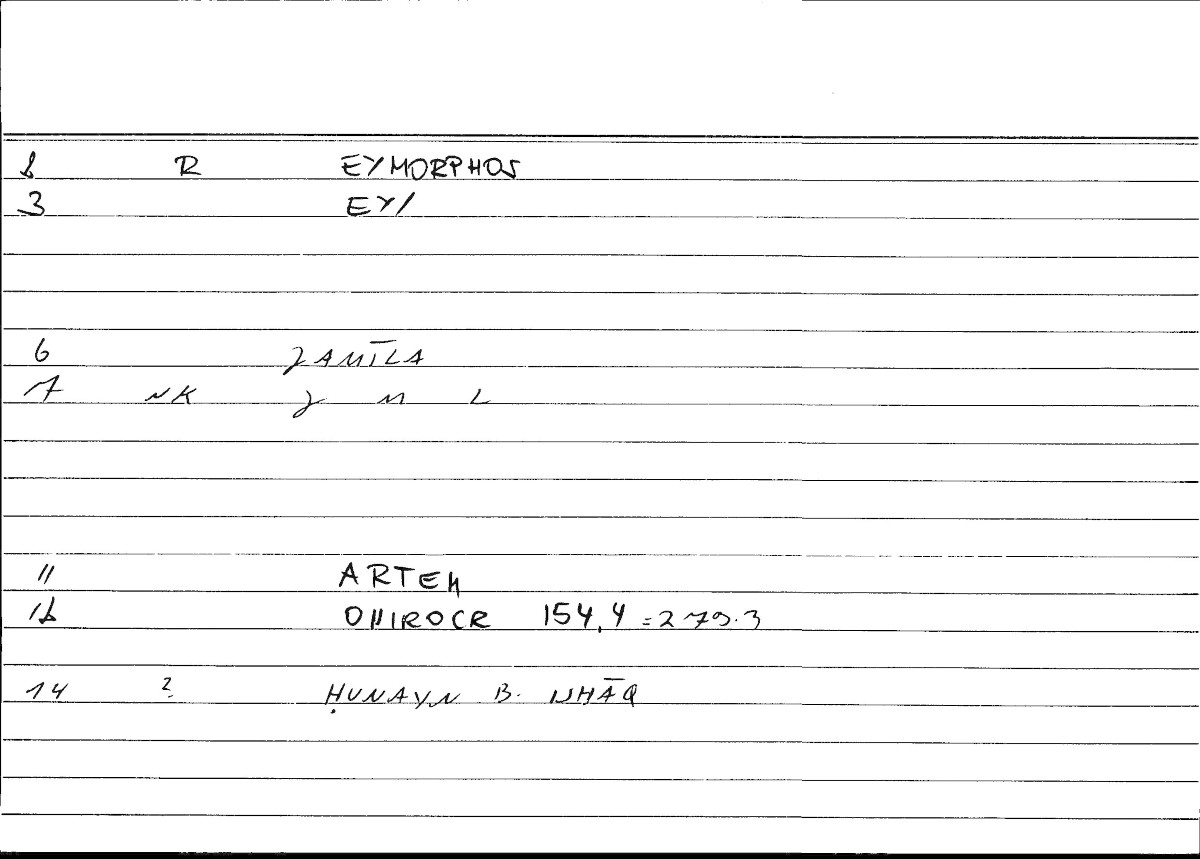 2 R EYMORPHOS
3 EY/
6 JAMĪLA
7 NK J M L
11 ARTEM
12 ONIROCR 154,4 = 279.3
14 ? ḤUNAYN B. ISHĀQ